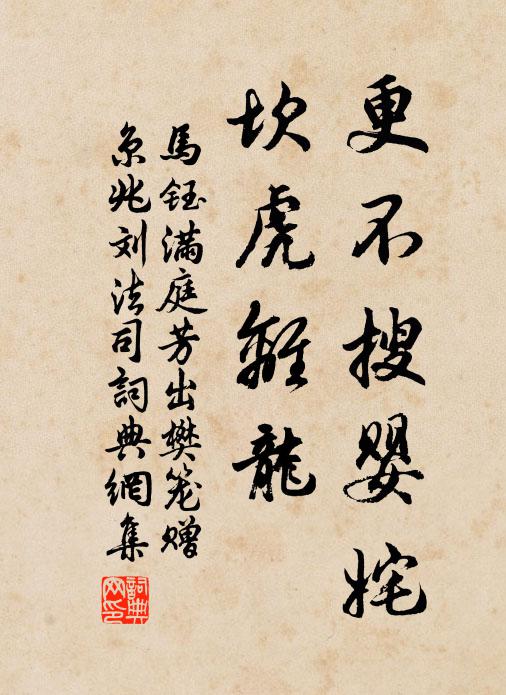 更不搜婴姹
坎虎離龍
馬鈺满庭芳出樊笼赠
京兆刘法司詞典網集
詞典网印